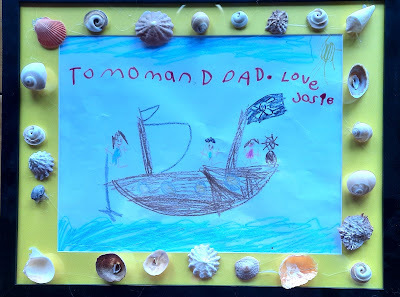 To mom an D DAD. Love
Josie